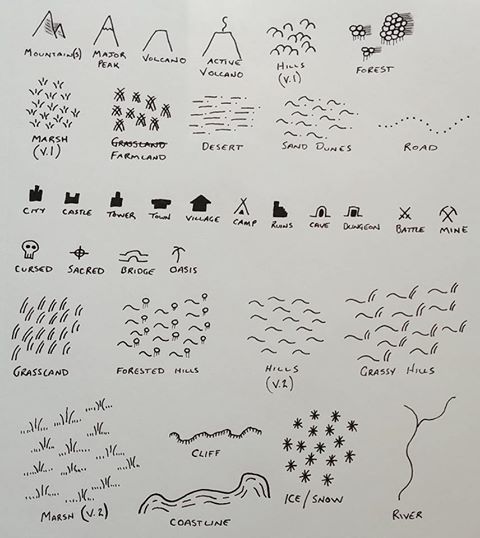 MOUNTAIN(S)
MAJOR
PEAK
VOLCANO
ACTIVE
VOLCANO
HILLS
(V.1)
FOREST
MARSH
(V.1)
GRASSLAND
FARMLAND
DESERT
SAND DUNES
ROAD
CITY
CASTLE
TOWER
TOWN
VILLAGE
CAMP
RUINS
CAVE
DUNGEON
BATTLE
MINE
CURSED
SACRED
BRIDGE
OASIS
GRASSLAND
FORESTED HILLS
HILLS
(V.2)
GRASSY HILLS
MARSH (V.2)
CLIFF
COASTLINE
ICE/SNOW
RIVER